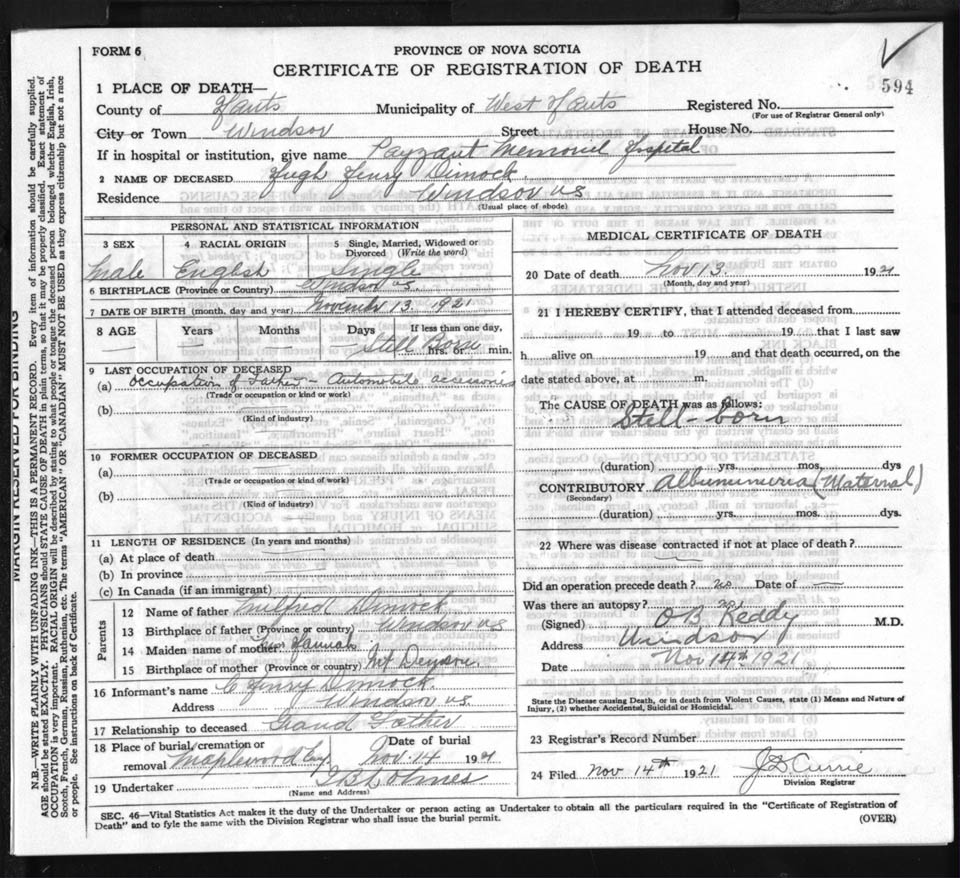 FORM 6
PROVINCE OF NOVA SCOTIA
CERTIFICATE OF REGISTRATION OF DEATH
594
1 PLACE OF DEATH—
County of Hants Municipality of West Hants Registered No.
(For use of Registrar General only)
City or Town Windsor Street House No.
If in hospital or institution, give name Payzant Memorial Hospital
2 NAME OF DECEASED Hugh Henry Dimock.
Residence Windsor N.S.
(Usual place of abode)
PERSONAL AND STATISTICAL INFORMATION
3 SEX 4 RACIAL ORIGIN 5 Single, Married, Widowed or Divorced (Write the word)
Male English Single
6 BIRTHPLACE (Province or Country) Windsor N.S.
7 DATE OF BIRTH (month, day and year) November 13. 1921
8 AGE Years Months Days If less than one day,
Still Born hrs. or min.
9 LAST OCCUPATION OF DECEASED
(a) Occupation of Father – Automobile accessories
(Trade or occupation or kind or work)
(b)
(Kind of industry)
10 FORMER OCCUPATION OF DECEASED
(a)
(Trade or occupation or kind of work)
(b)
(Kind of industry)
11 LENGTH OF RESIDENCE (In years and months)
(a) At place of death
(b) In province
(c) In Canada (if an immigrant)
Parents
12 Name of father Milfred Dimock
13 Birthplace of father (Province or country) Windsor N.S.
14 Maiden name of mother Hannah
15 Birthplace of mother (Province or country) Mt Denson
16 Informant's name C Henry Dimock.
Address Windsor N.S.
17 Relationship to deceased Grand Father
18 Place of burial, cremation or removal Maplewood Cem. Date of burial Nov. 14 1921
19 Undertaker Holmes
(Name and Address)
MEDICAL CERTIFICATE OF DEATH
20 Date of death Nov 13. 1921
(Month, day and year)
21 I HEREBY CERTIFY, that I attended deceased from
19 to 19 that I last saw
h alive on 19 and that death occurred, on the
date stated above, at m.
The CAUSE OF DEATH was as follows:
Still-born
(duration) yrs. mos. dys
CONTRIBUTORY Albuminuria (Maternal)
(Secondary)
(duration) yrs. mos. dys.
22 Where was disease contracted if not at place of death?
Did an operation precede death? No Date of
Was there an autopsy? No
(Signed) O B Keddy M.D.
Address Windsor
Date Nov 14th 1921
State the Disease causing Death, or in death from Violent Causes, state (1) Means and Nature of Injury, (2) whether Accidental, Suicidal or Homicidal.
23 Registrar's Record Number
24 Filed Nov 14th 1921 Currie
Division Registrar
SEC. 46—Vital Statistics Act makes it the duty of the Undertaker or person acting as Undertaker to obtain all the particulars required in the "Certificate of Registration of
Death" and to fyle the same with the Division Registrar who shall issue the burial permit.
(OVER)
MARGIN RESERVED FOR BINDING
N.B.—WRITE PLAINLY WITH UNFADING INK—THIS IS A PERMANENT RECORD. Every item of information should be carefully supplied.
AGE should be stated EXACTLY. PHYSICIANS should STATE CAUSE OF DEATH in plain terms, so that it may be properly classified. Exact statement of
OCCUPATION is very important. RACIAL ORIGIN will be described by stating to what people or tongue the deceased person belonged whether English, Irish,
Scotch, French, German, Russian, Ruthenian, etc. The terms "AMERICAN" OR "CANADIAN" MUST NOT BE USED as they express citizenship but not a race
or people. See instructions on back of Certificate.